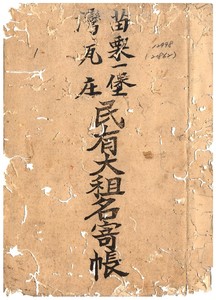 苗栗一堡
灣瓦庄
民有大租名寄帳